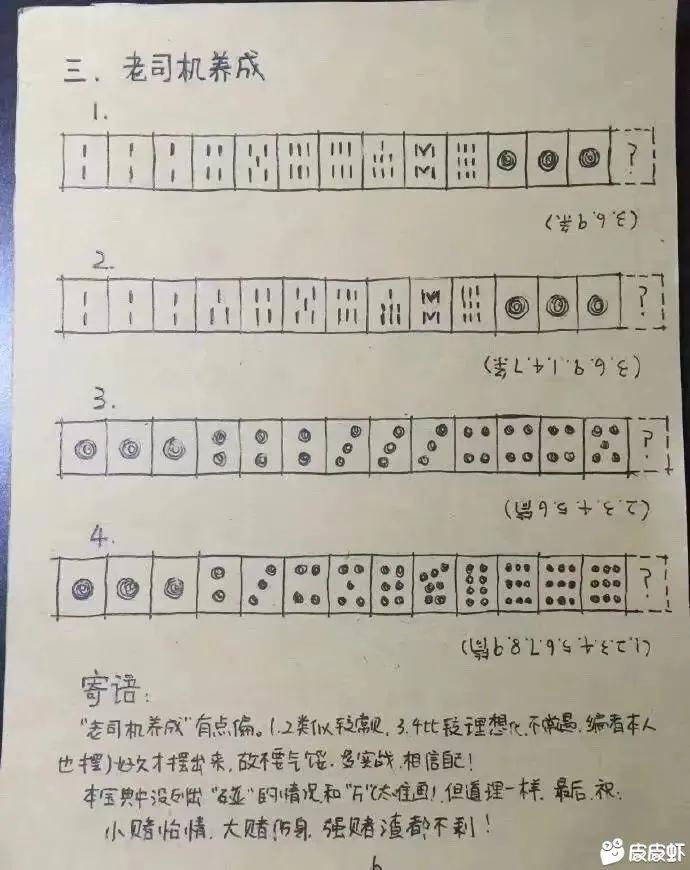 三. 老司机养成
1.
?
(3.6.9条)
2.
?
(3.6.9.1.4.7条)
3.
?
(2.3.4.5.6筒)
4.
?
(1.2.3.4.5.6.7.8.9筒)
寄语:
"老司机养成"有点偏。1.2类似较常见, 3.4比较理想化,不常遇. 编者本人
也摆了好久才摆出来, 故不要气馁. 多实战, 相信自己!
本宝典中没列出"碰"的情况和"万"(太难画)但道理一样. 最后, 祝:
小赌怡情, 大赌伤身, 强赌渣都不剩!
6
皮皮虾